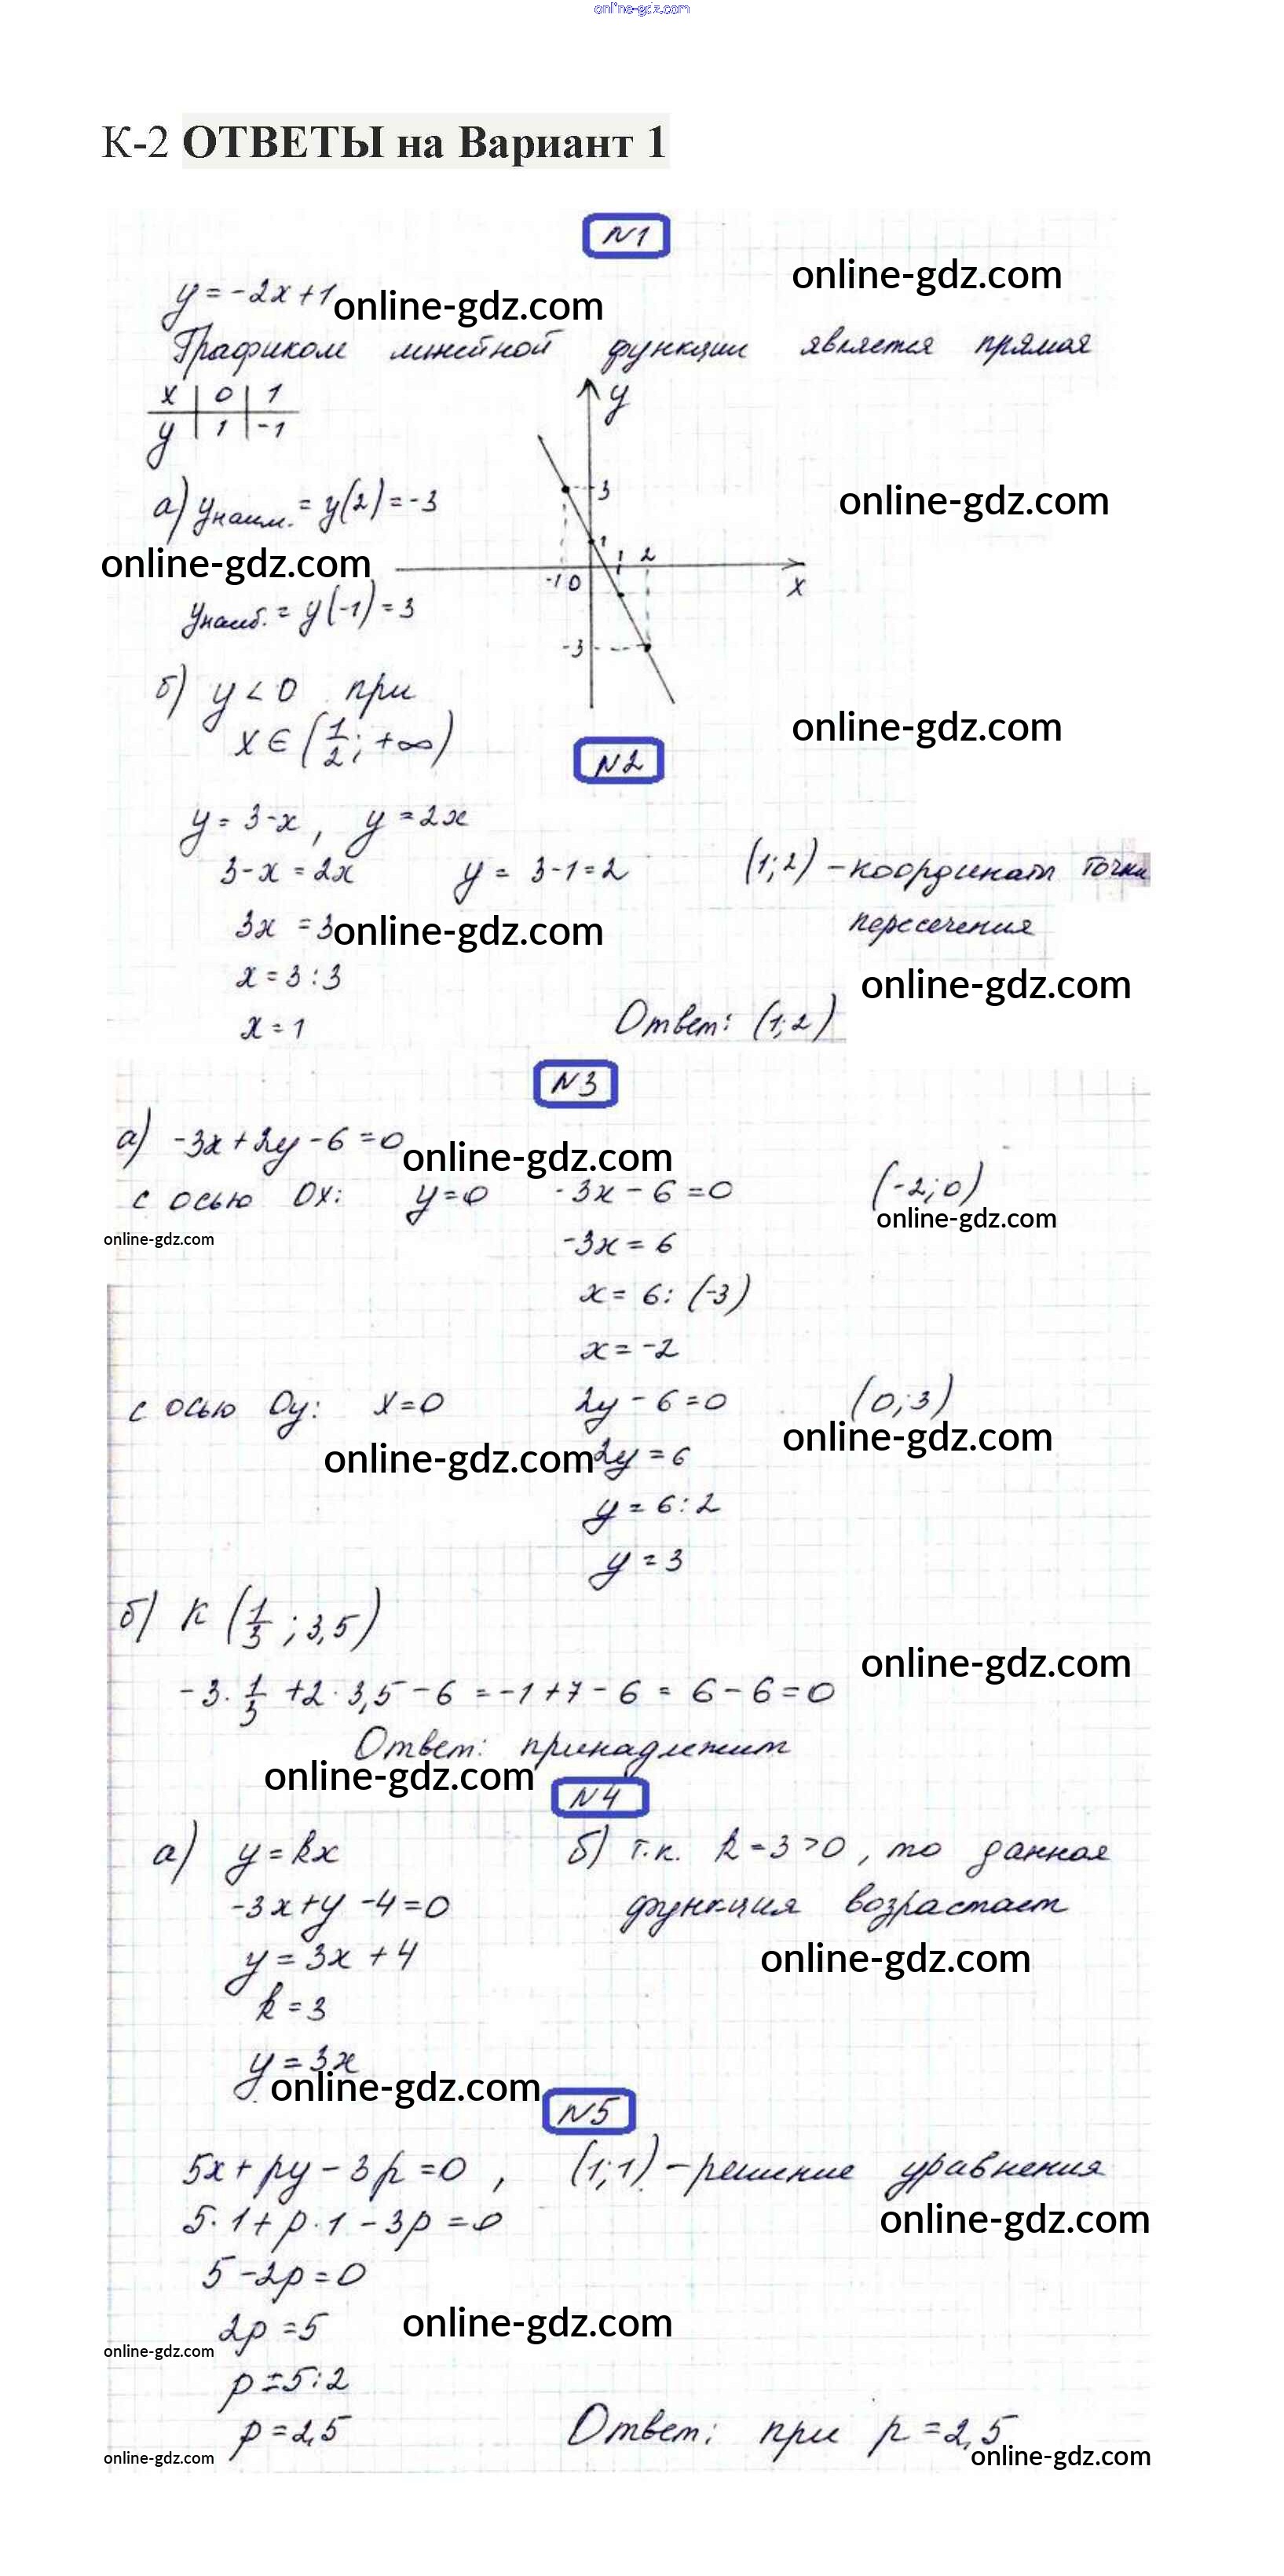 online-gdz.com
К-2 ОТВЕТЫ на Вариант 1
N1
online-gdz.com
y = -2x + 1 online-gdz.com
Графиком линейной функции является прямая
x | 0 | 1
y | 1 | -1
y
3
1
1 2
-1 0
x
-3
а) yнаим. = y(2) = -3
online-gdz.com
online-gdz.com
yнаиб. = y(-1) = 3
б) y < 0 при
x ∈ (1/2; +∞)
online-gdz.com
N2
y = 3-x, y = 2x
3-x = 2x y = 3-1 = 2 (1;2) - координаты точки
пересечения
3x = 3 online-gdz.com
x = 3 : 3
online-gdz.com
x = 1
Ответ: (1;2)
N3
а) -3x + 2y - 6 = 0 online-gdz.com
с осью Ox: y=0 -3x - 6 = 0 (-2;0)
online-gdz.com
online-gdz.com
-3x = 6
x = 6 : (-3)
x = -2
с осью Oy: x=0 2y - 6 = 0 (0;3)
online-gdz.com
online-gdz.com 2y = 6
y = 6 : 2
y = 3
б) K (1/3; 3,5)
online-gdz.com
-3 · 1/3 + 2 · 3,5 - 6 = -1 + 7 - 6 = 6 - 6 = 0
Ответ: принадлежит
online-gdz.com
N4
а) y = kx
-3x + y - 4 = 0
y = 3x + 4
k = 3
y = 3x
б) т.к. k = 3 > 0, то данная
функция возрастает
online-gdz.com
online-gdz.com
N5
5x + py - 3p = 0, (1;1) - решение уравнения
5·1 + p·1 - 3p = 0 online-gdz.com
5 - 2p = 0
2p = 5 online-gdz.com
online-gdz.com
p = 5 : 2
p = 2,5 Ответ: при p = 2,5
online-gdz.com online-gdz.com